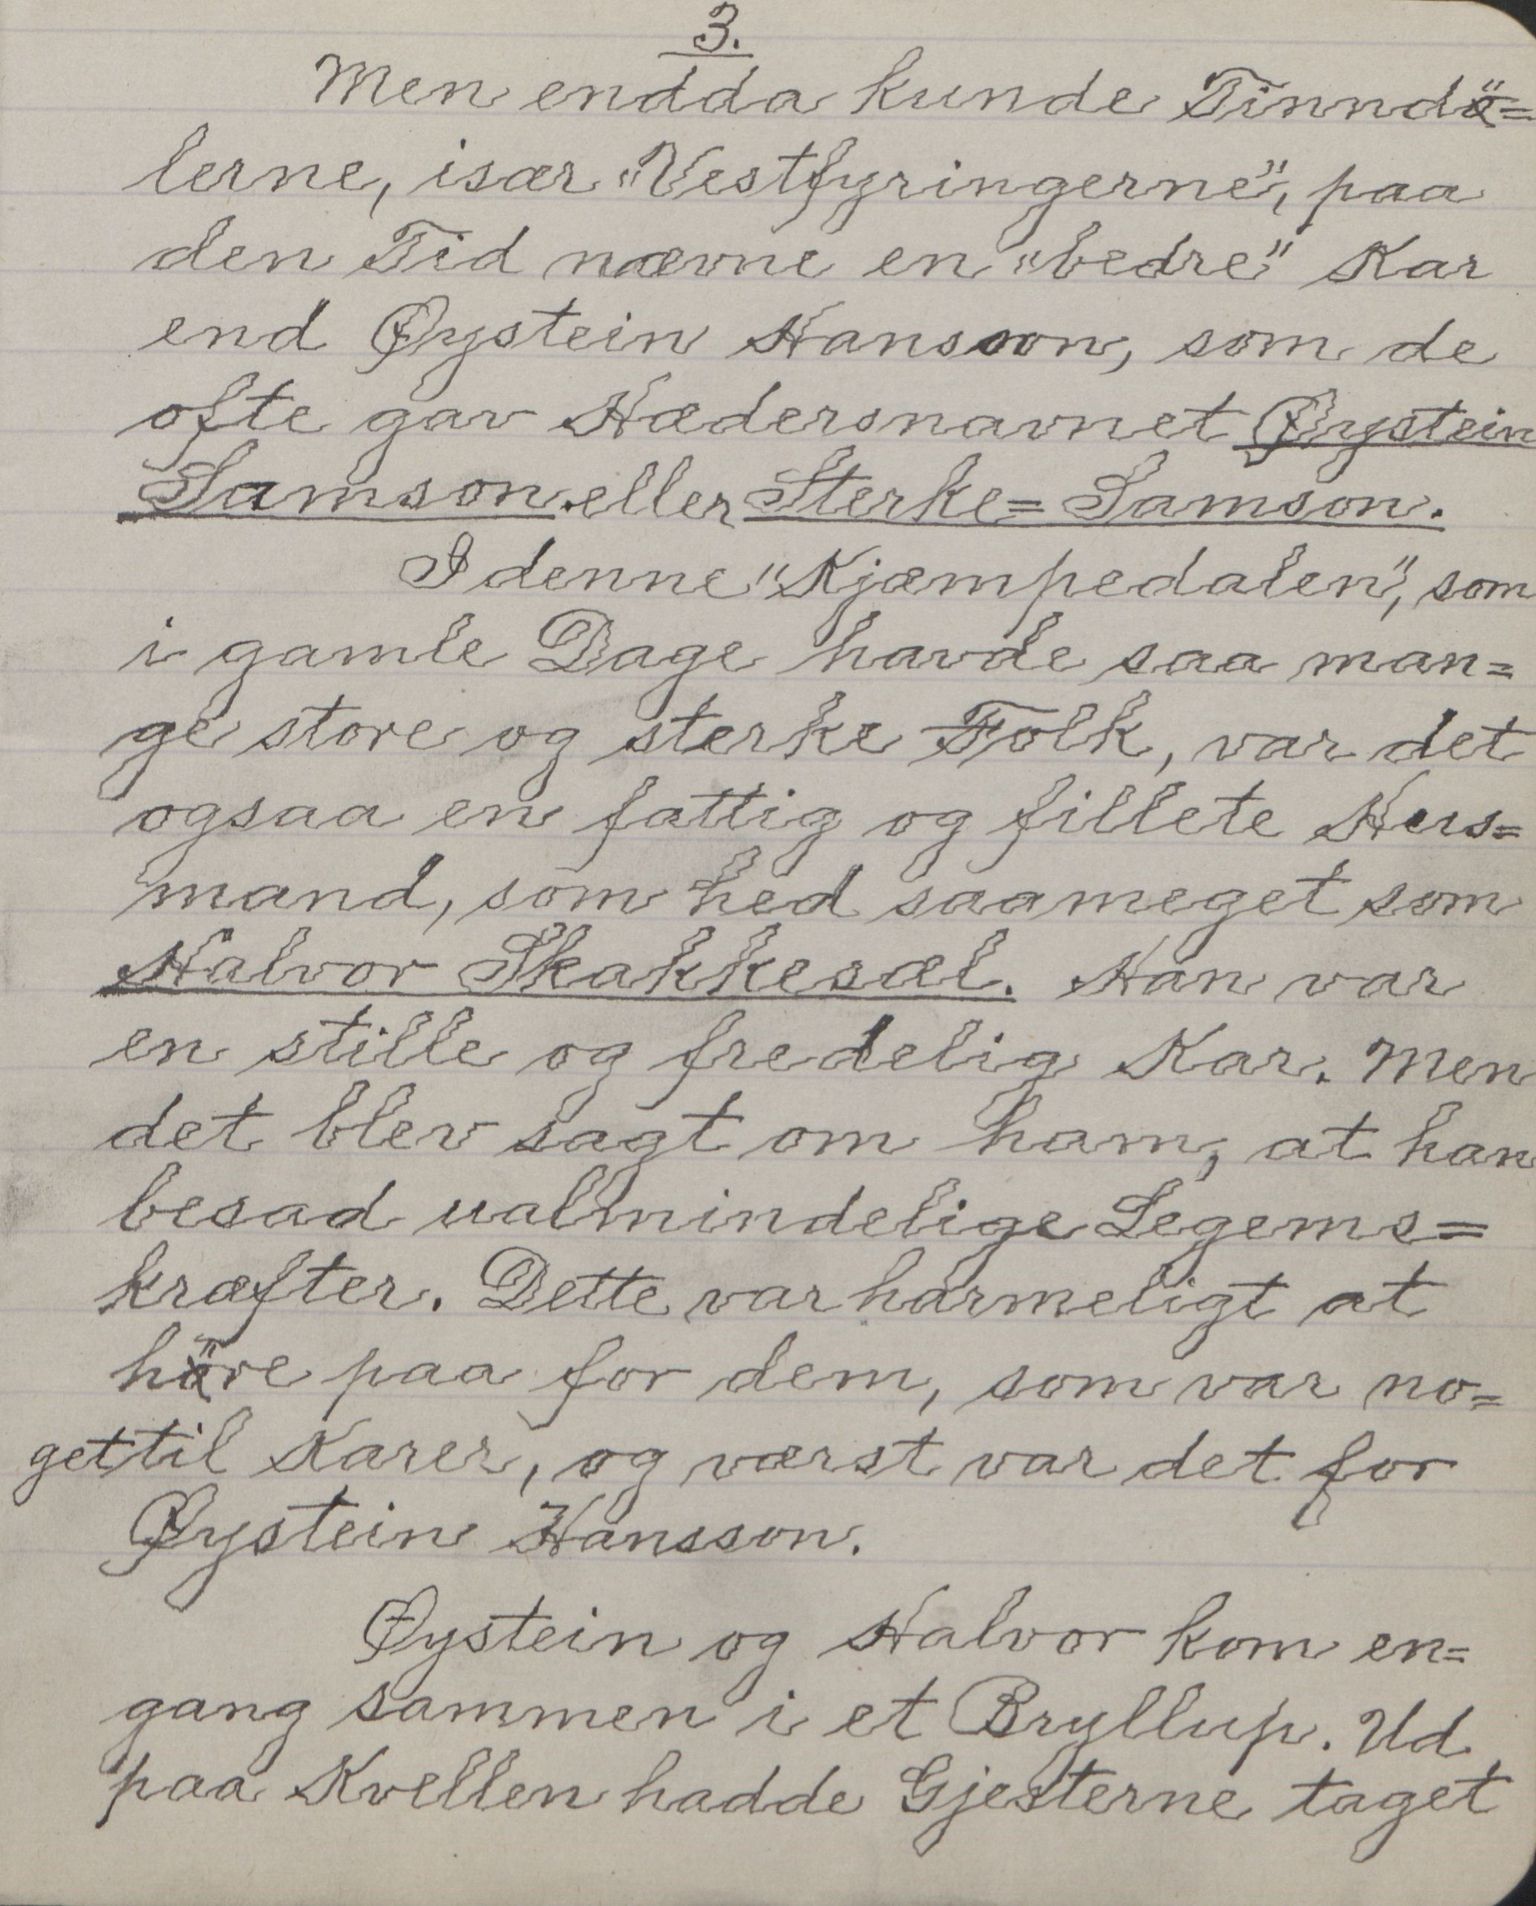 3.
Men endda kunde Tinndö=
lerne, især "Vestfyringerne", paa
den Tid nævne en "bedre" Kar
end Øystein Hansson, som de
ofte gav Hædersnavnet Øystein
Samson. eller Sterke=Samson.
I denne "Kjæmpedalen", som
i gamle Dage havde saa man=
ge store og sterke Folk, var det
ogsaa en fattig og fillete Hus=
mand, som hed saameget som
Halvor Skakkesæl. Han var
en stille og fredelig Kar. Men
det blev sagt om ham, at han
besad ualmindelige Legems=
kræfter. Dette var harmeligt at
höre paa for dem, som var no=
get til Karer, og værst var det for
Øystein Hansson.
Øystein og Halvor kom en=
gang sammen i et Bryllup. Ud
paa Kvellen hadde Gjesterne taget